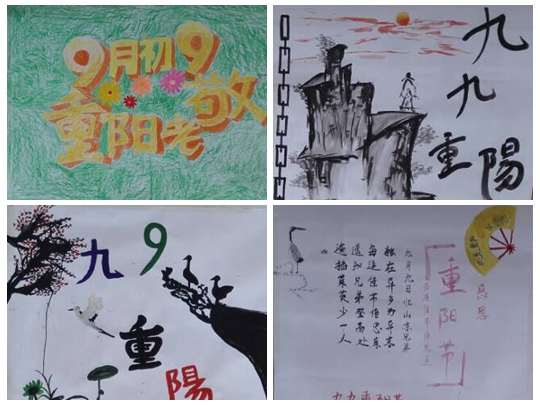 9月初9
重阳敬老
九
九
重
陽
九9
重
陽
感恩
重阳节
九月九日忆山东兄弟
独在异乡为异客
每逢佳节倍思亲
遥知兄弟登高处
遍插茱萸少一人